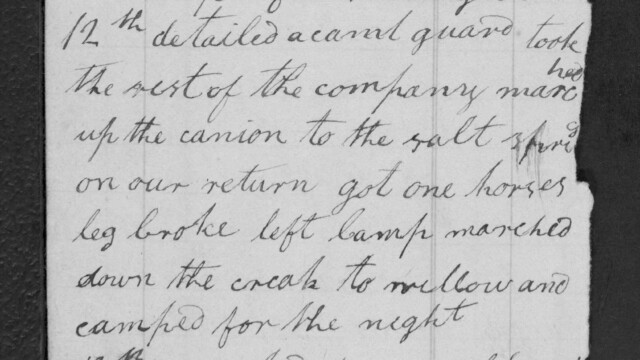 12th detailed a caml guard took
the rest of the company marc
hed
up the canion to the salt
on our return got one horses
leg broke left Camp marched
down the creak to willow and
camped for the night